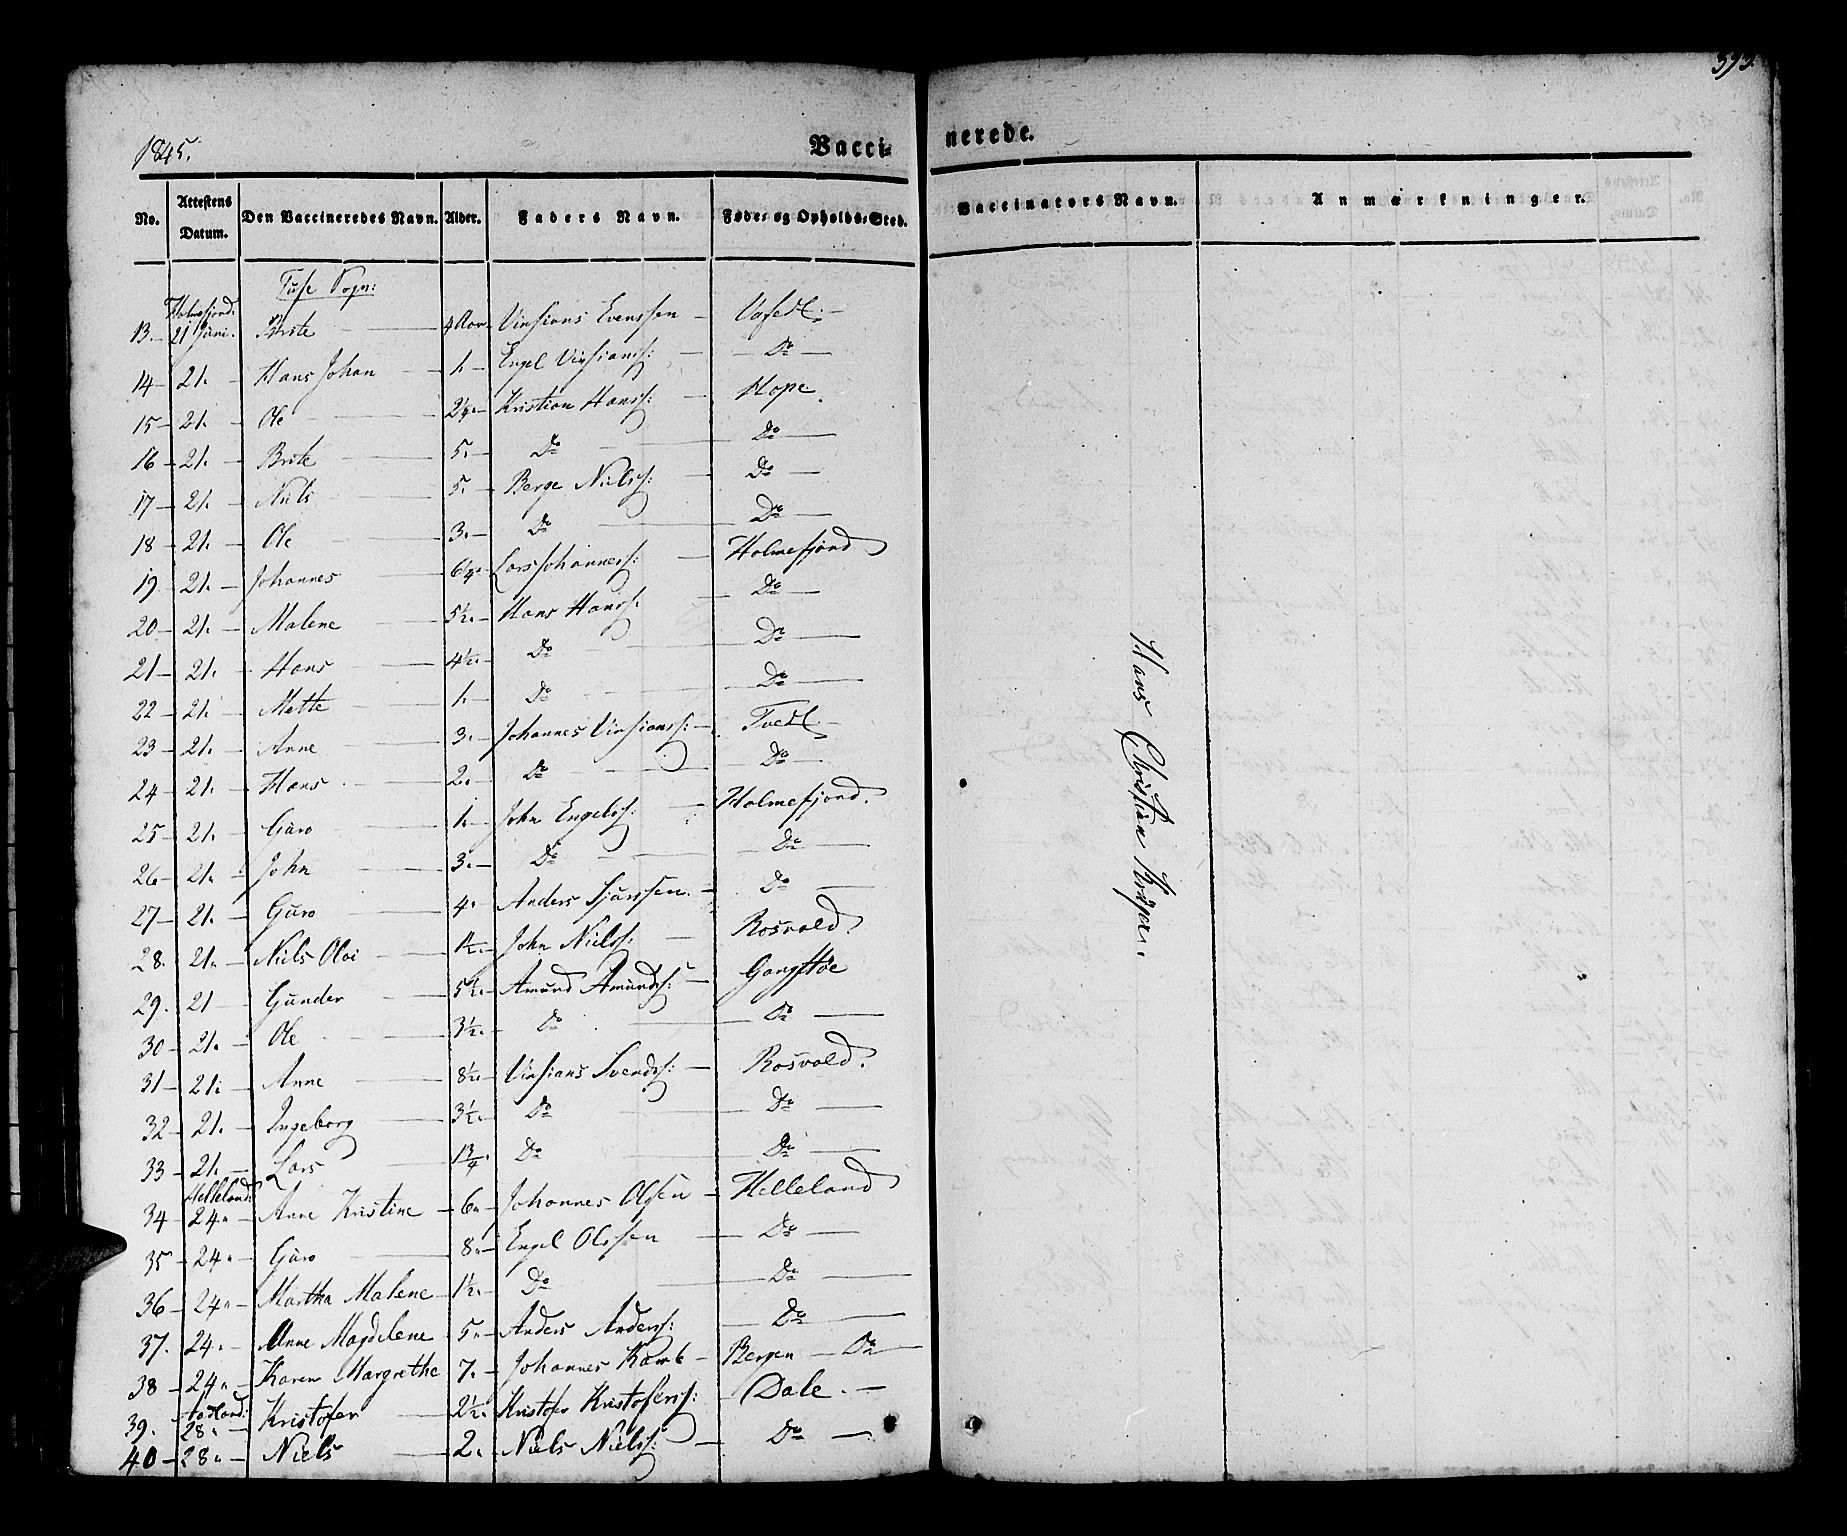 1845.
Vaccinerede.
393.
No. Attestens Datum. Den Vaccineredes Navn. Alder. Faders Navn. Føde- og Opholds-Sted. Vaccinators Navn. Anmærkninger.
Sogn:
Holmefjord.
13. 21 Juni. Brite 4 Aar Evenssen
14 21. Hans Johan 1. Engel Do
15 21. Ole 2¼. Kristian Hanss: Hope.
16 21. Brite 5. Do Do
17 21. Niels 5. Berge Nielss: Do
18 21. Ole 3. Do Do
19 21. Johannes 6¼. Lars Johanness: Holmefjord
20 21. Malene 5½. Hans Hanss: Do
21 21. Hans 4½. Do Do
22 21. Mette 1. Do Do
23 21. Anne 3. Johannes Tvedt.
24 21. Hans 2. Do Do
25 21. Guro 1. John Engelss: Holmefjord.
26 21. John 3. Do Do
27 21. Guro 4. Anders Sjurssen. Do
28. 21. Niels Olai 1½. John Nielss: Rosvold.
29. 21 Gunder 5½. Amund Amundss: Gangstøe
30 21. Ole 3½. Do Do
31 21. Anne 8½. Svendss: Rosvold.
32 21. Ingeborg 3½. Do Do
33 21. Lars 1¾. Do Do
Helleland
34 24. Anne Kristine 6. Johannes Olsen Helleland
35 24. Guro 8. Engel Olssen Do
36 24. Martha Malene 1½. Do Do
37. 24. Anne Magdelene 5. Anders Anderss: Do
38 24. Karen Margrethe 7. Johannes Kamb Bergen Do
39. 28. Kristofer 2½. Kristofer Kristoferss: Dale.
40 28. Niels 2. Niels Nielss: Do
Hans Christian